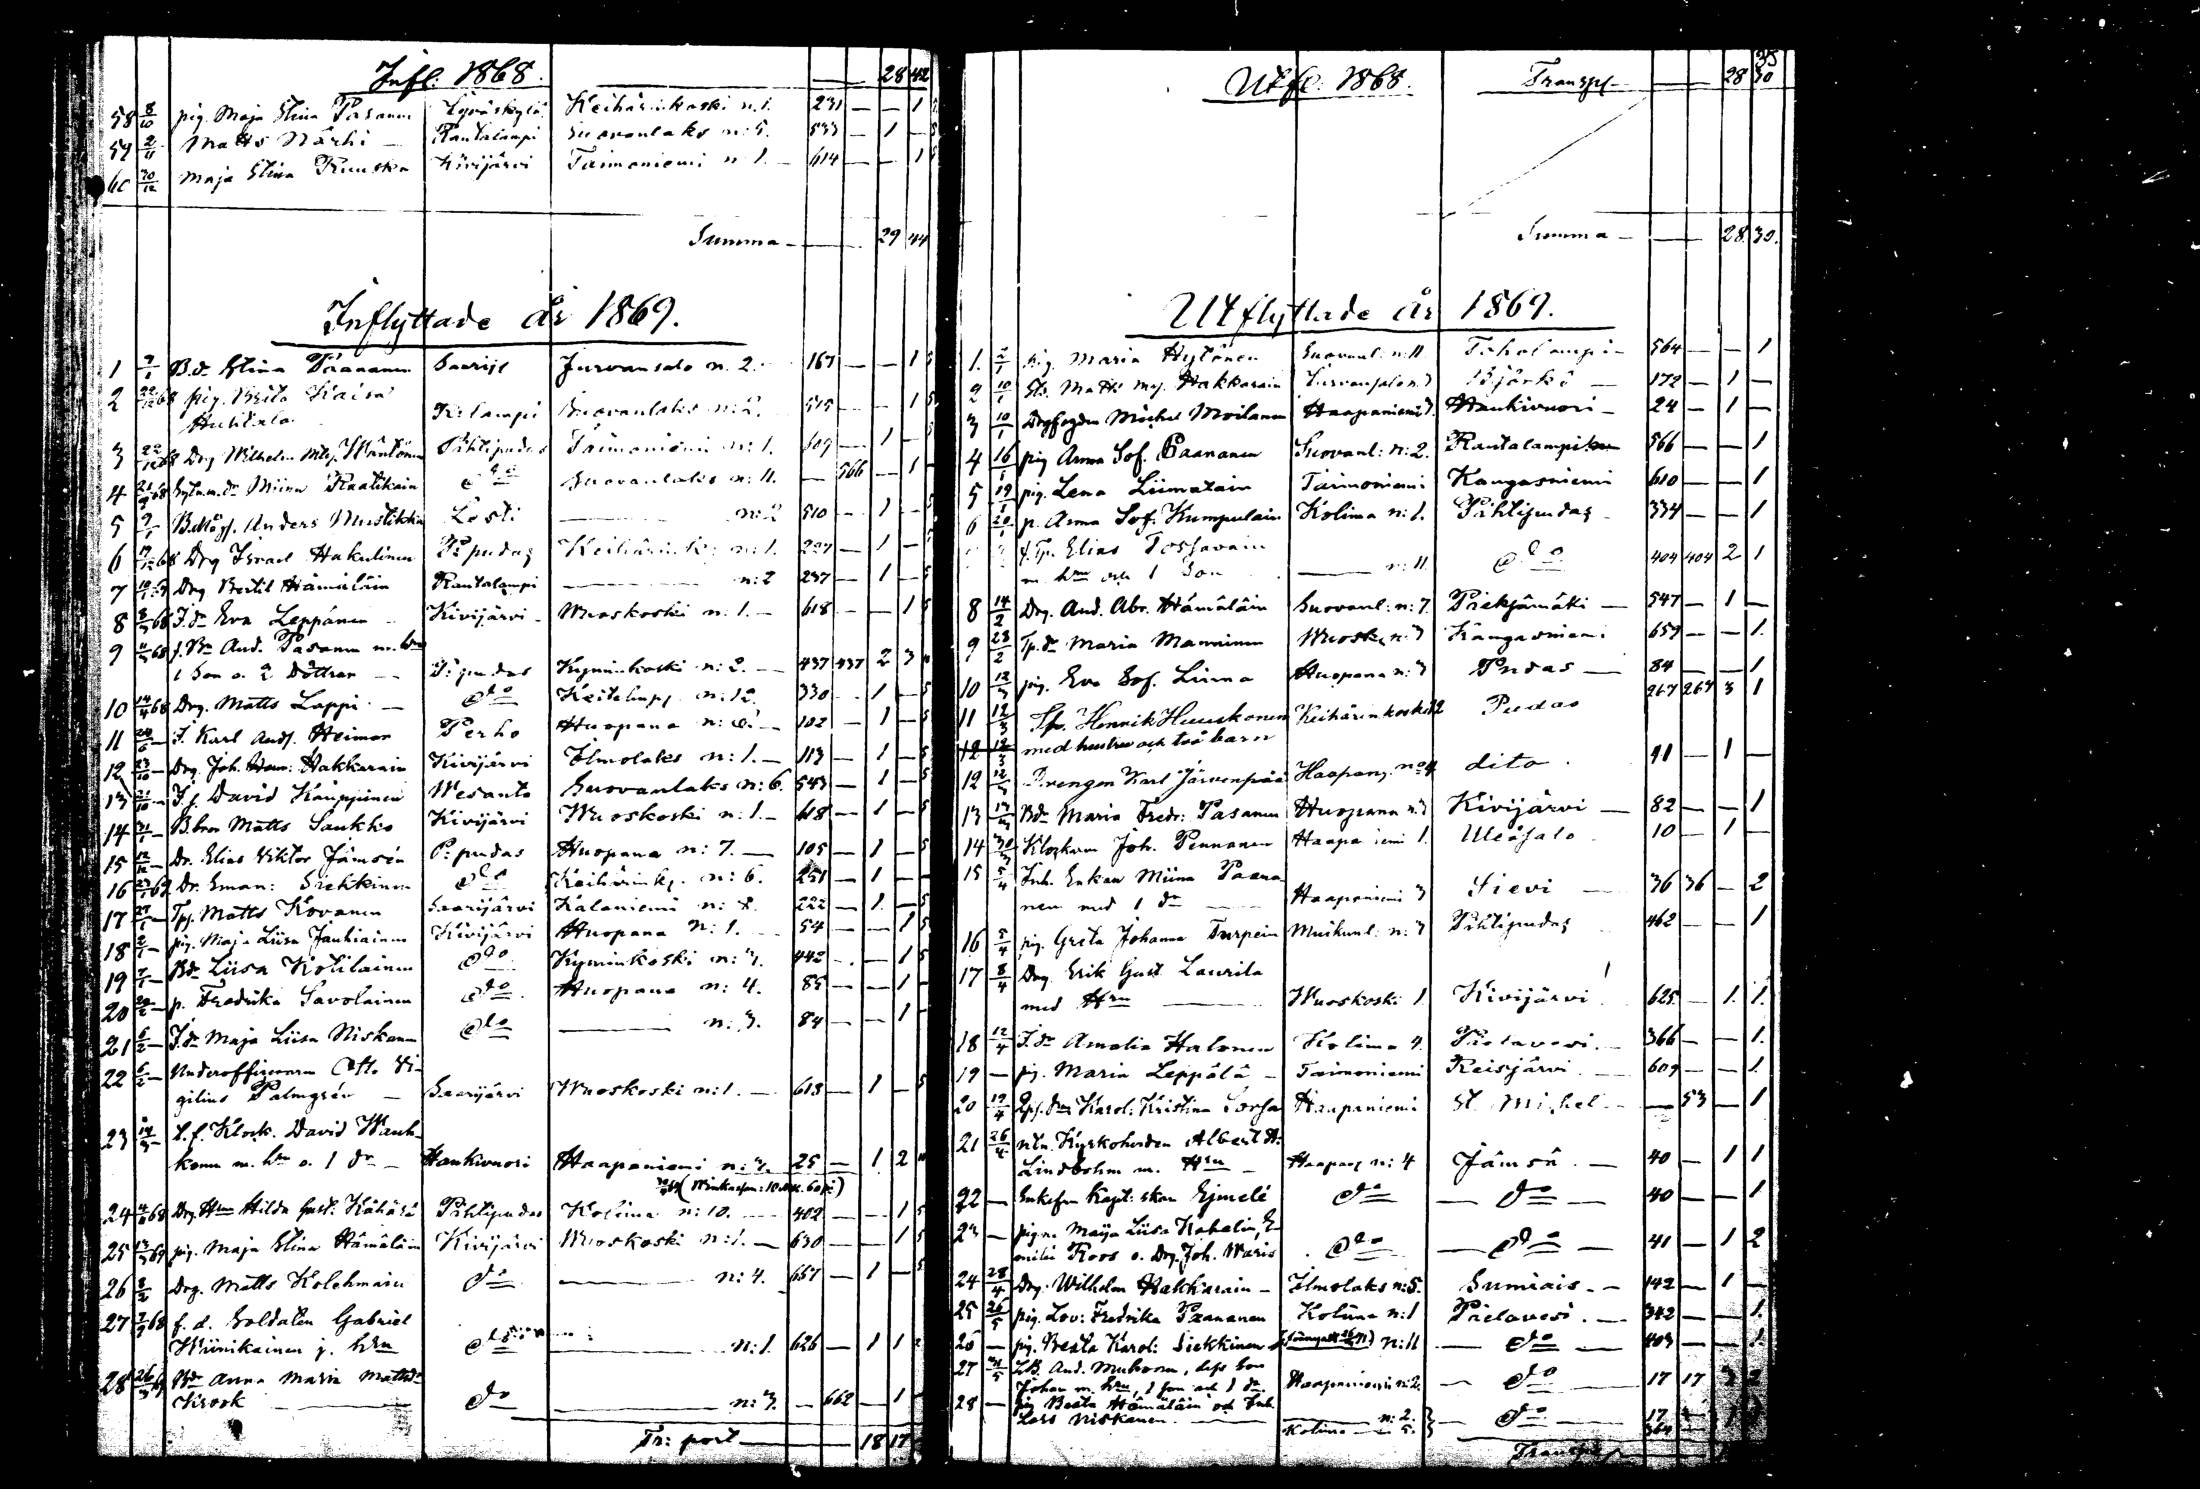 Infl. 1868. 28 42
58 8/10 pig. Maja Stina Pasanen Jyväskylä Keihärinkoski n. 1. 231 — — 1
59 2/11 Matts Närhi — Rautalampi Suovanlaks n: 5. 533 — 1 —
60 20/12 Maja Stina Ruuska Kivijärvi Taimoniemi n 1. — 614 — — 1
Summa — 29 44
Inflyttade år 1869.
1 7/1 B.dr Stina Paananen Saarij Jurvansalo n. 2. 167 — — 1 5
2 22/12 68 pig. Brita Kaisa
Huhtala R:lampi Suovanlaks n: 2. 515 — — 1 5
3 22/12 68 Drg Wilhelm Mtss. Wäntönen Pihtipudas Taimoniemi n: 1. 609 — 1 — 5
4 68 Miina Raatikain do Suovanlaks n: 11. — 566 — 1 —
5 7/1 B.Mågs. Anders Mustikka Lesti — n: 2 510 — 1 — 5
6 68 Drg Israel Hakulinen P:pudas Keihärink: n: 1. 227 — 1 —
7 Drg Bertil Hämäläin Rautalampi — n: 2 237 — 1 — 5
8 68 I.dr Eva Leppänen Kivijärvi Wuoskoski n: 1. — 618 — — 1 5
9 68 f. Bn And. Pasanen m. hru
1 Son o. 2 Döttrar — P:pudas Kyminkoski n: 2. — 437 437 2 3
10 14/4 68 Drg. Matts Lappi. — do Keitelepp. n: 12. 330 — 1 — 5
11 I. Karl And. Heimon Perho Huopana n: 6. — 102 — 1 — 5
12 23/10 Drg. Joh. Hakkarain Kivijärvi Ilmolaks n: 1. — 113 — 1 — 5
13 21/10 I.s. David Kauppinen Wesanto Suovanlaks n: 6. 543 — 1 — 5
14 B.bror Matts Saukko Kivijärvi Wuoskoski n: 1. — 618 — 1 — 5
15 12/12 Dr. Elias Viktor Jämsén P:pudas Huopana n: 7. — 105 — 1 — 5
16 69 Dr. Eman: Siekkinen do Keihärinkj. n: 6. 251 — 1 —
17 Tps. Matts Kovanen Saarijärvi Kalaniemi n: 8. 222 — 1. — 5
18 2/1 pig. Maja Liisa Jauhiainen Kivijärvi Huopana n: 1. 54 — — 1 5
19 7/1 Bdr Liisa Kotilainen do Kyminkoski n: 3. 442 — — 1 5
20 p. Fredrika Savolainen do Huopana n: 4. 85 — — 1 —
21 6/2 I.dr Maja Liisa Niskanen do — n: 3. 84 — — 1 —
22 6/2 Underofficeraren Otto Vi-
gilius Palmgrén — Saarijärvi Wuoskoski n: 1. — 613 — 1 — 5
23 14/3 t.f. Klock. David Wauh-
konen m. hru o. 1 dr — Haukivuori Haapaniemi n: 3. 25 — 1 2
24 68 Drg. Hru Hilda Gust. Kähärä Pihtipudas Kolima n: 10. — 402 — — 1 5
25 69 pig. Maja Stina Hämäläin Kivijärvi Wuoskoski n: 1. — 630 — — 1 5
26 8/2 Drg. Matts Kolehmain do — n: 4. 667 — 1 — 5
27 68 f. d. Soldaten Gabriel
Wiinikainen j. hru do — n: 1. 626 — 1 1
28 26/3 Bdr Anna Maria Mattsdr
Krook — do — n: 3. — 662 — 1 —
Tr: port — 18 17
35
Utfl. 1868. Transp. — 28 30
Summa — 28. 30.
Utflyttade år 1869.
1. 2/1 pig. Maria Hytönen Suovanl: n: 11 Toholampi — 564 — — 1
2 10/1 Matts Hakkarain Jurvansalo n. 3 Björkö — 172 — 1 —
3 10/1 Drgfogden Michel Moilanen Haapaniemi 3. Haukivuori — 24 — 1 —
4 16/1 pig Anna Sof. Paananen Suovanl: n: 2. Rautalampi 566 — — 1
5 19/1 pig. Lena Liimatain Taimoniemi Kangasniemi 610 — — 1
6 20/1 p. Anna Sof. Kumpulain Kolima n: 1. Pihtipudas — 334 — — 1
f. Tp. Elias Tossavain
m. hru och 1 Son — n: 11. do 404 404 2 1
8 14/2 Drg. And. Abr. Hämäläin Suovanl: n: 7. Pieksämäki — 547 — 1 —
9 23/2 Tp.dr Maria Manninen Wuosk. n: 3 Kangasniemi 659 — — 1.
10 12/3 pig. Eva Sof. Linna Huopana n: 3 Pudas — 84 — — 1
11 12/3 Sp. Henrik Huuskonen Keihärinkoski 12 Pudas 267 267 3 1
12 12/3 med hustru och två barn
12 12/3 Drengen Karl Järvenpää Haapanj. no 4 dito. 41 — 1 —
13 Bdr Maria Fredr: Pasanen Huopana n. 3 Kivijärvi — 82 — — 1
14 30/3 Klockaren Joh. Pennanen Haapaniemi 1. Uleåsalo 10 — 1 —
15 5/4 Inh. Enkan Miina Paana-
nen med 1 dr — Haapaniemi 3 Sievi — 36 36 — 2
16 5/4 pig. Greta Johanna Turpein Muikunl: n: 3 Pihtipudas 462 — — 1
17 8/4 Drg. Erik Gust Laurila
med Hru — Wuoskoski 1 Kivijärvi 625 — 1. 1.
18 12/4 I.dr Amalia Halonen Kolima 4. Pielavesi. — 366 — — 1.
19 — pig. Maria Leppälä — Taimoniemi Reisjärvi. — 609 — — 1.
20 19/4 Karol: Kristina Sorsa Haapaniemi St. Michel — — 53 — 1
21 26/4 Kyrkoherden Albert H:
Lindbohm m. Hru — Haapanj n: 4 Jämsä. — 40 — 1 1
22 — Enkefru Kapt:skan Ejmelé do — do — 40 — — 1
23 — pig:n: Maija Liisa Kabalin, E-
milia Roos o. Drg. Joh. Waris do — do — 41 — 1 2
24 28/4 Drg. Wilhelm Hakkarain — Ilmolaks n: 5. Sumiais. — 142 — 1 —
25 26/5 pig. Lov: Fredrika Paananen Kolima n: 1 Pielavesi. — 342 — — 1.
26 — pig. Beata Karol: Siekkinen n: 11 — do — 403 — — 1.
27 And. Muhonen, dess son
Johan m. hru, 1 son och 1 dr. Haapaniemi n: 2. — do 17 17
28 — pig Beata Hämäläin och Inh.
Lars Niskanen. — n: 2. — do — 17
Kolima — 5. 364
Transp.